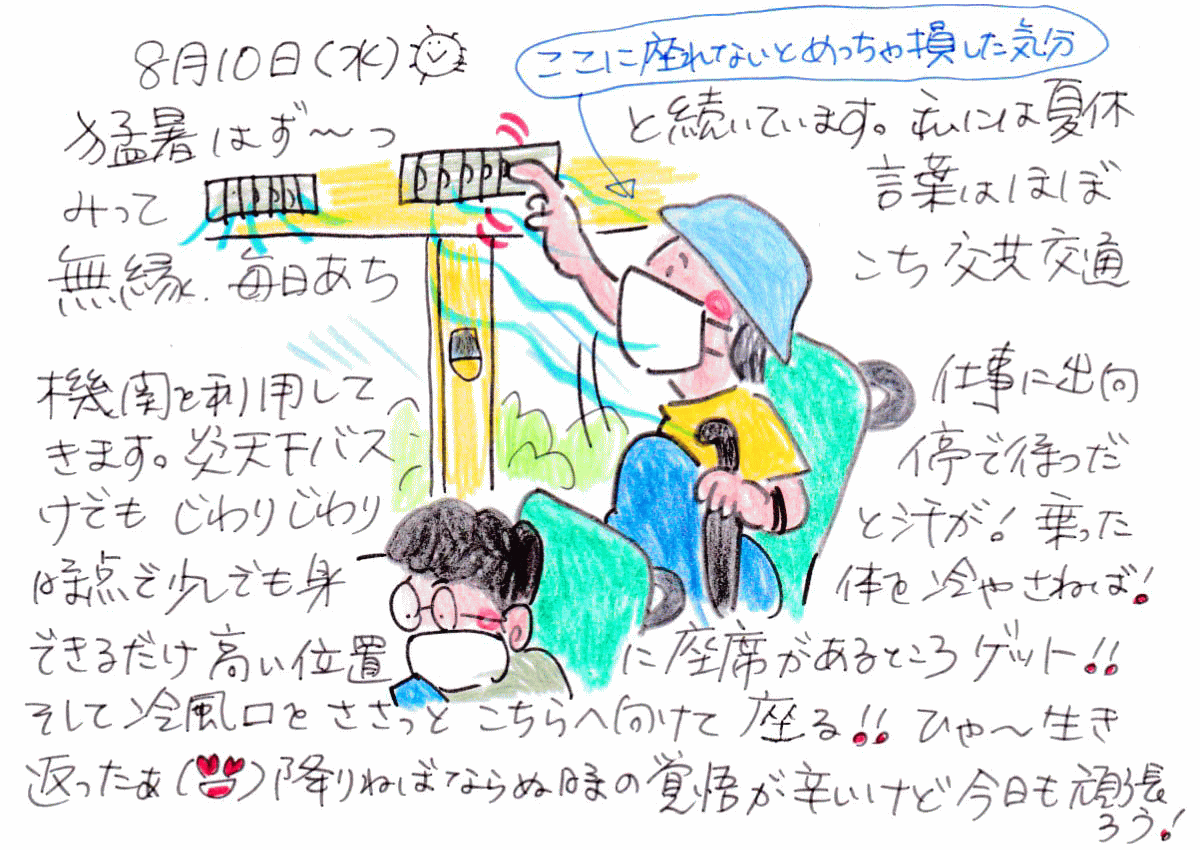 8月10日(水)
ここに座れないとめっちゃ損した気分
猛暑はず〜っと続いています。私には夏休
みって言葉はほぼ
無縁.毎日あちこち交共交通
機関を利用して仕事に出向
きます。炎天下バス停で待つだ
けでもじわりじわりと汗が!乗った
時点で少しでも身体を冷やさねば!
できるだけ高い位置に座席があるところゲット!!
そして冷風口をささっとこちらへ向けて座る!!ひゃ〜生き
返ったぁ()降りねばならぬ時の覚悟が辛いけど今日も頑張
ろう!